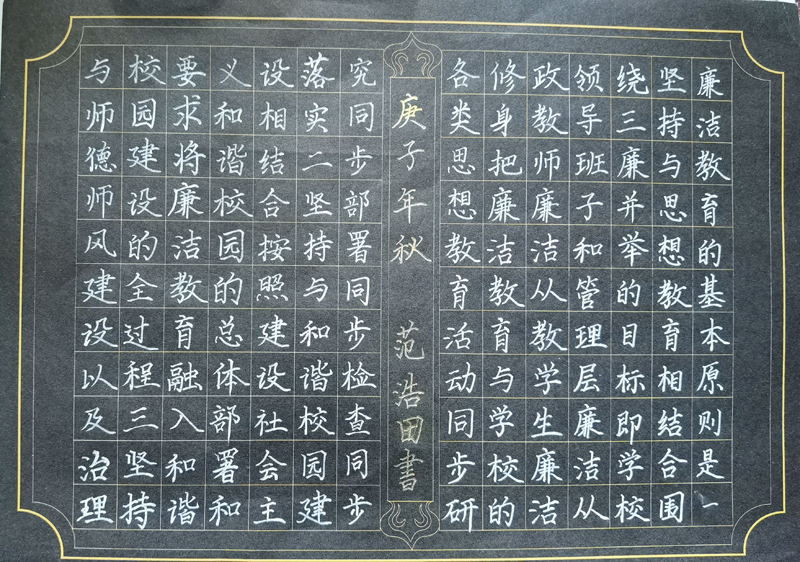 廉洁教育的基本原则是一
坚持与思想教育相结合围
绕三廉并举的目标即学校
领导班子和管理层廉洁从
政教师廉洁从教学生廉洁
修身把廉洁教育与学校的
各类思想教育活动同步研
庚子年秋 范浩田書
究同步部署同步检查同步
落实二坚持与和谐校园建
设相结合按照建设社会主
义和谐校园的总体部署和
要求将廉洁教育融入和谐
校园建设的全过程三坚持
与师德师风建设以及治理